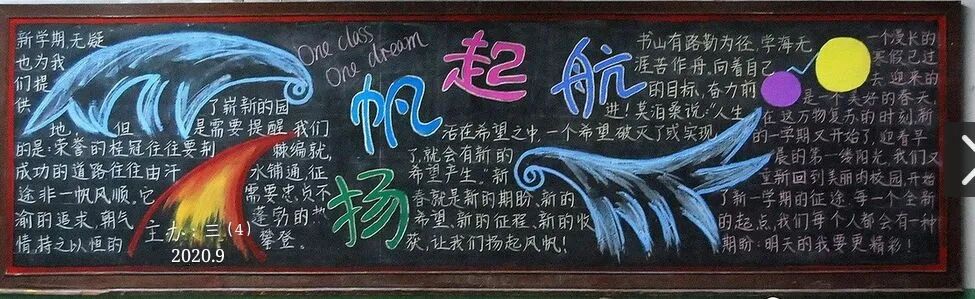 新学期,无疑
也为我
们提
供 了崭新的园
地,但 是需要提醒我们
的是:荣誉的桂冠往往要荆 棘编就,
成功的道路往往由汗 水铺通,征
途非一帆风顺。它 需要忠贞不
渝的追求,朝气 蓬勃的热
情,持之以恒的 攀登。
主办:三(4)
2020.9
One class
One dream
扬帆起航
书山有路勤为径,学海无
涯苦作舟。向着自己
的目标,奋力前
进!莫泊桑说:“人生
活在希望之中一个希望破灭了或实现
了,就会有新的
希望产生。”新
春就是新的期盼、新的
希望、新的征程、新的收
获,让我们扬起风帆!
一个漫长的
寒假已过
去,迎来的
是一个美好的春天,
在这万物复苏的时刻,新
的一学期又开始了,迎着早
晨的第一缕阳光,我们又
重新回到美丽的校园,开始
了新一学期的征途,每一个全新
的起点,我们每个人都会有一种
期盼:明天的我要更精彩!